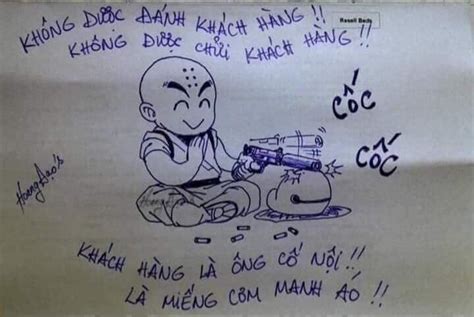 KHÔNG ĐƯỢC ĐÁNH KHÁCH HÀNG !!
KHÔNG ĐƯỢC CHỬI KHÁCH HÀNG !!
CỐC
CỐC
HoangDao's
KHÁCH HÀNG LÀ ÔNG CỐ NỘI !!
LÀ MIẾNG CƠM MANH ÁO !!